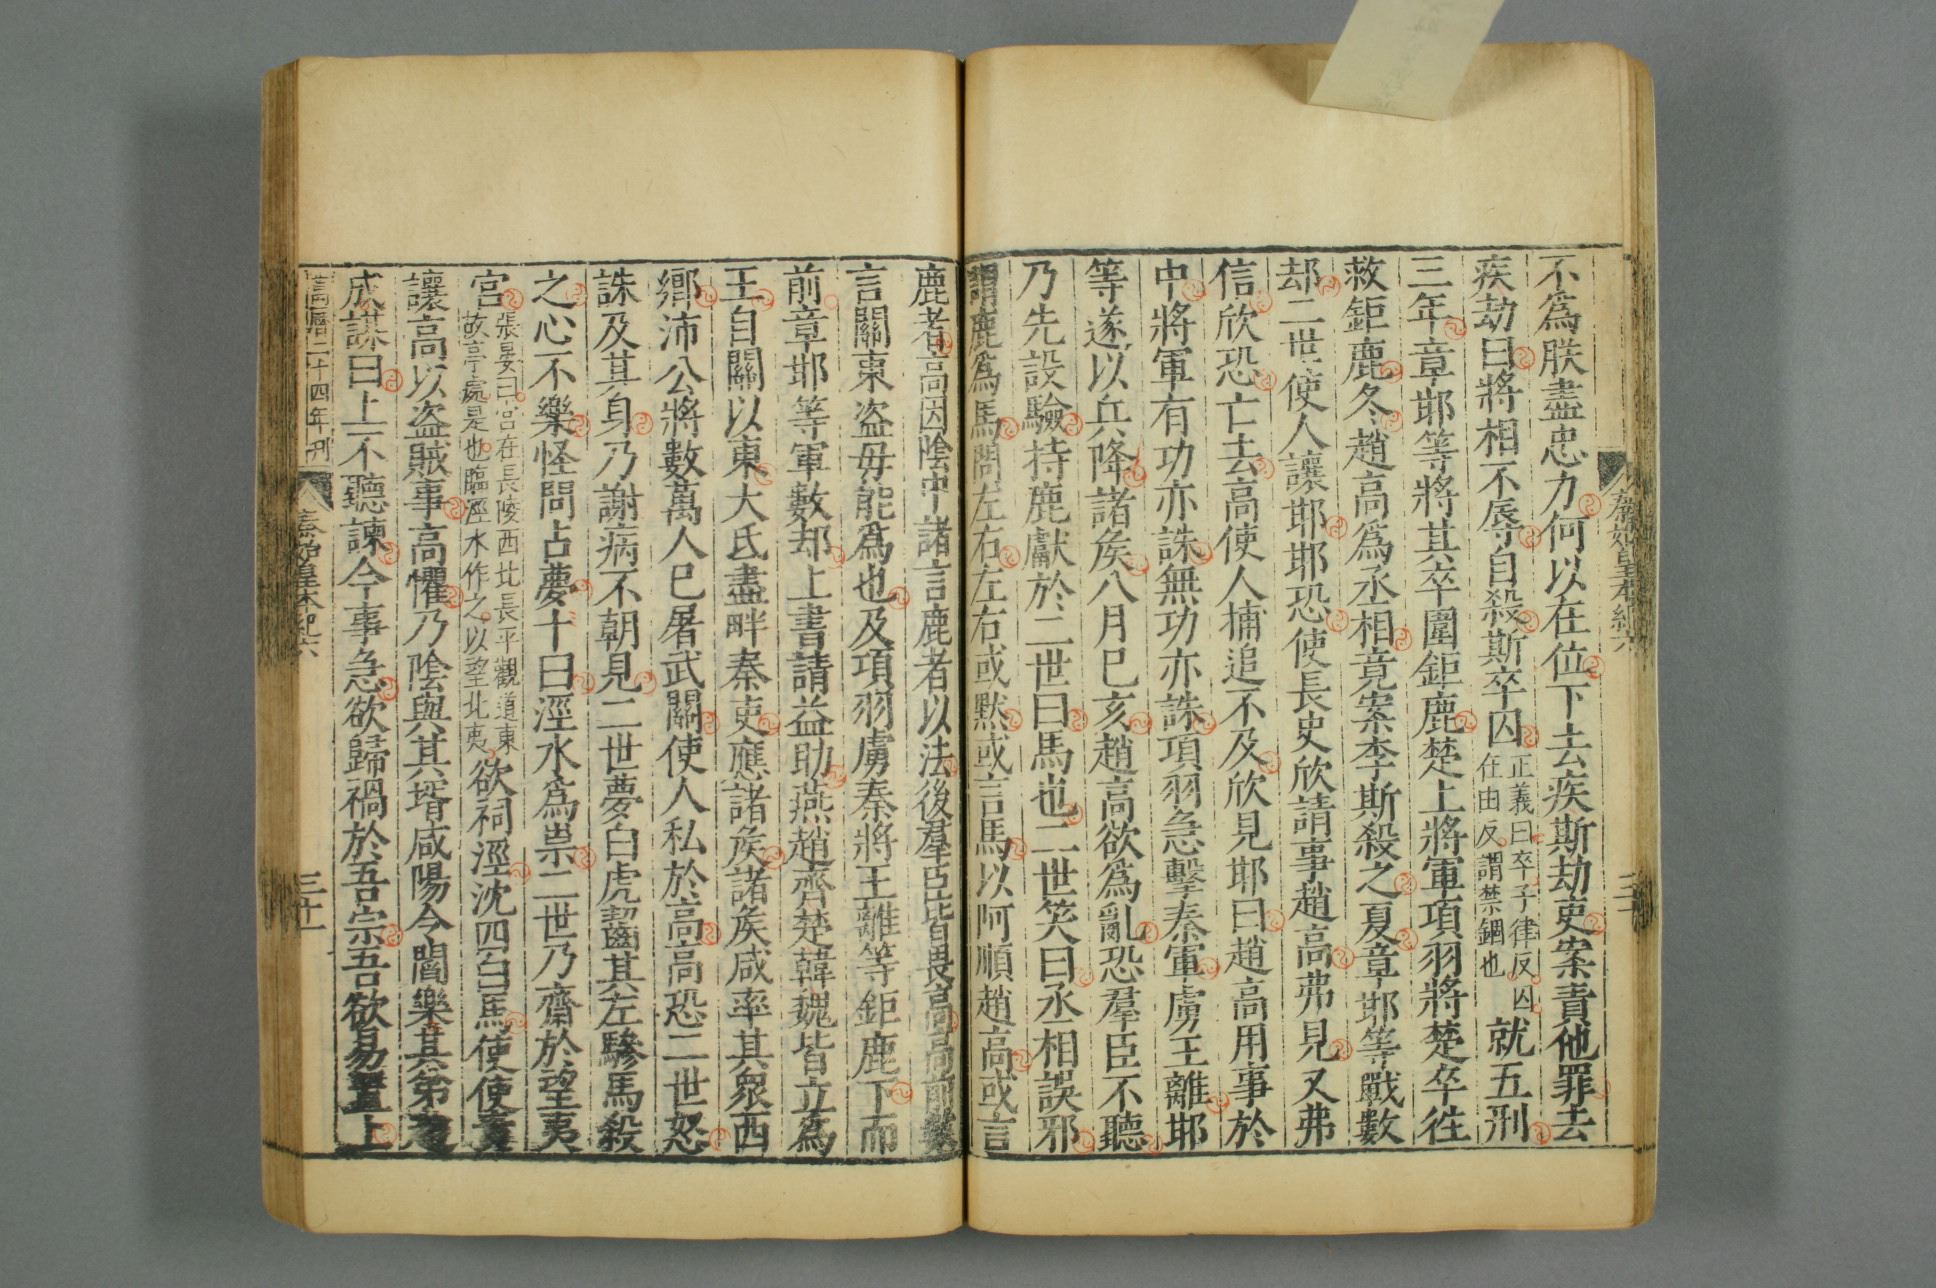 不爲朕盡忠力何以在位下去疾斯劫吏案責他罪去
疾劫曰將相不辱自殺斯卒囚正義曰卒子律反囚在由反謂禁錮也就五刑
三年章邯等將其卒圍鉅鹿楚上將軍項羽將楚卒徃
救鉅鹿冬趙高爲丞相竟案李斯殺之夏章邯等戰數
却二世使人讓邯邯恐使長史欣請事趙高弗見又弗
信欣恐亡去高使人捕追不及欣見邯曰趙高用事於
中將軍有功亦誅無功亦誅項羽急擊秦軍虜王離邯
等遂以兵降諸侯八月巳亥趙高欲爲亂恐羣臣不聽
乃先設驗持鹿獻於二世曰馬也二世笑曰丞相誤邪
謂鹿爲馬問左右左右或默或言馬以阿順趙高或言
鹿者高因陰中諸言鹿者以法後羣臣皆畏高高前數
言關東盗毋能爲也及項羽虜秦將王離等鉅鹿下而
前章邯等軍數却上書請益助燕趙齊楚韓魏皆立爲
王自關以東大氐盡畔秦吏應諸侯諸侯咸率其衆西
鄉沛公將數萬人巳屠武關使人私於高高恐二世怒
誅及其身乃謝病不朝見二世夢白虎齧其左驂馬殺
之心不樂怪問占夢卜曰涇水爲祟二世乃齋於望夷
宮張晏曰宮在長陵西北長平觀道東故亭處是也臨涇水作之以望北夷欲祠涇沈四白馬使使責
讓高以盗賊事高懼乃陰與其壻咸陽令閻樂其弟趙
成謀曰上不聽諫今事急欲歸禍於吾宗吾欲易置上
萬曆二十四年刊
秦始皇本紀六
三十一